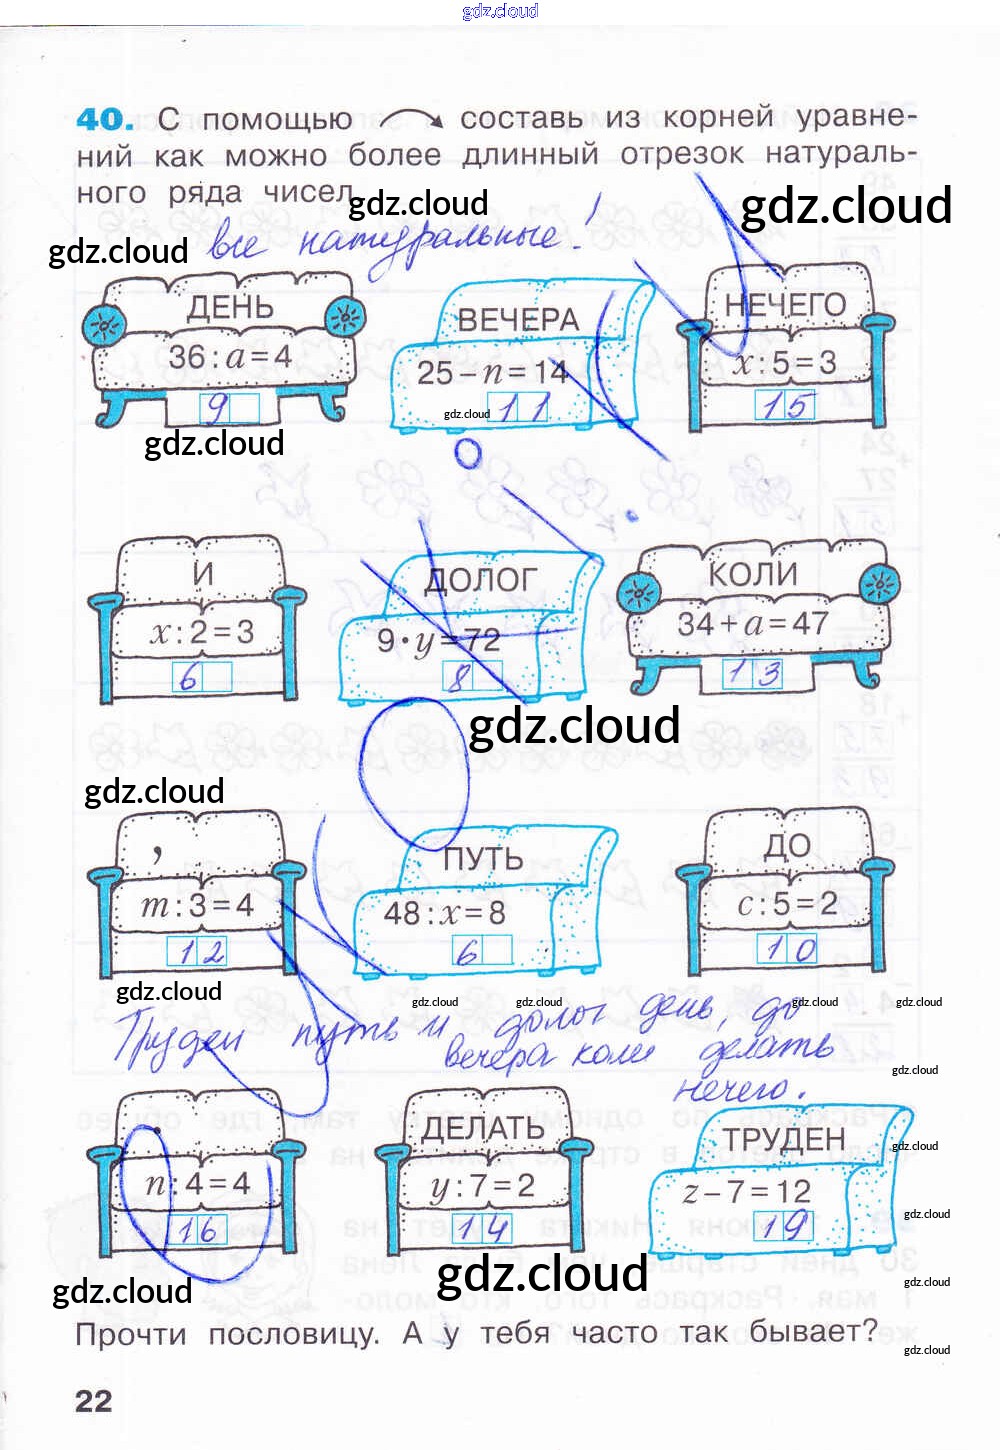 gdz.cloud
40. С помощью составь из корней уравне-
ний как можно более длинный отрезок натураль-
ного ряда чисел.
gdz.cloud gdz.cloud
gdz.cloud все натуральные!
ДЕНЬ ВЕЧЕРА НЕЧЕГО
36 : a = 4 25 – n = 14 x : 5 = 3
9 gdz.cloud 11 15
gdz.cloud
И ДОЛОГ КОЛИ
x : 2 = 3 9 · y = 72 34 + a = 47
6 8 13
gdz.cloud
gdz.cloud
, ПУТЬ ДО
m : 3 = 4 48 : x = 8 c : 5 = 2
12 6 10
gdz.cloud gdz.cloud gdz.cloud gdz.cloud gdz.cloud
Труден путь и долог день, до
вечера коли делать
gdz.cloud
нечего.
. ДЕЛАТЬ ТРУДЕН
gdz.cloud
n : 4 = 4 y : 7 = 2 z – 7 = 12
16 14 19
gdz.cloud
gdz.cloud gdz.cloud gdz.cloud
Прочти пословицу. А у тебя часто так бывает?
gdz.cloud
22